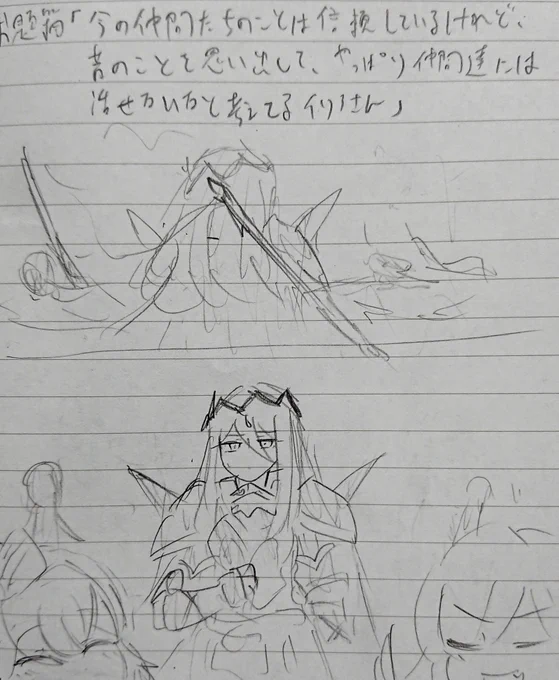 お題箱「今の仲間たちのことは信頼しているけれど、
昔のことを思い出して、やっぱり仲間達には
話せないなと考えてるイリさん」